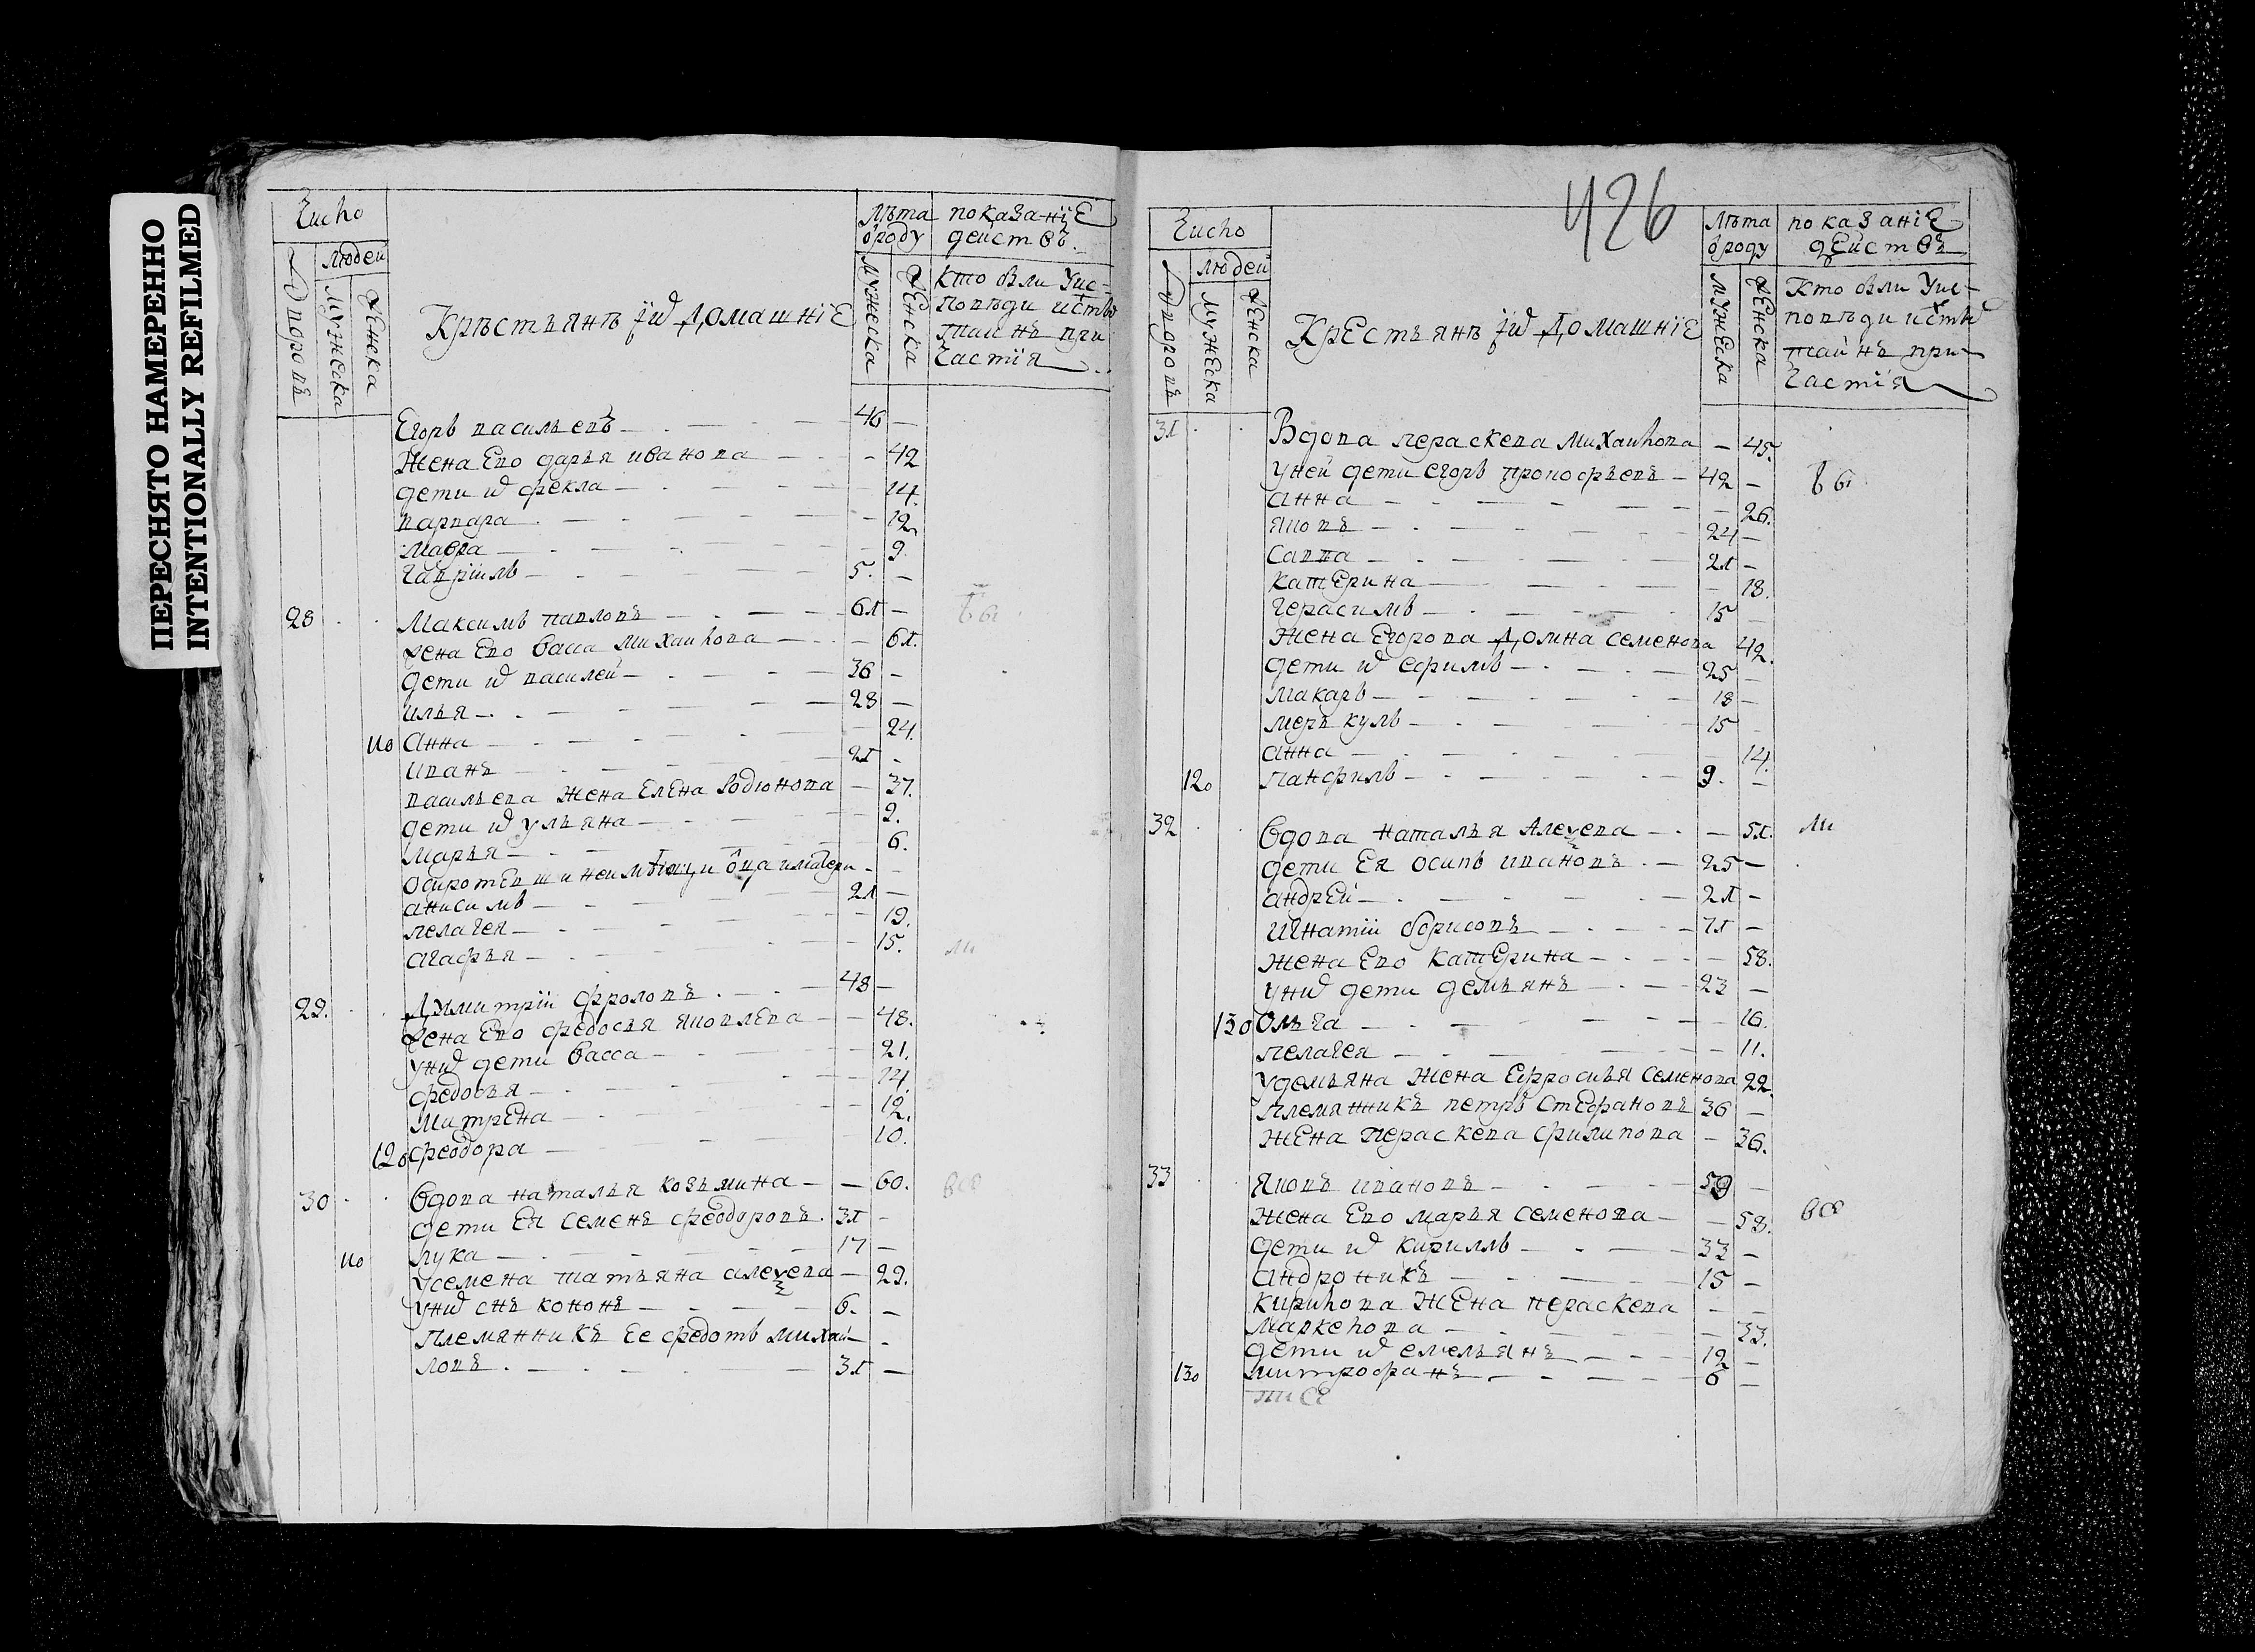 ПЕРЕСНЯТО НАМЕРЕННО
INTENTIONALLY REFILMED
Число
людей
дворовъ
мужеска
женска
Крестьянъ ихъ домашніе
лѣта
ѿроду
мужеска
женска
показаніе
действъ
кто были уис-
поведи истыхъ
таинъ при
частія
Егоръ васильевъ 46
Жена Его дарья иванова 42
дети их фекла 14.
варвара 12
мавра 9.
гавріилъ 5.
28 Максимъ павловъ 61 вы
жена Его васса михаилова 61.
дети их василей 36
илья 28
110 анна 24.
иванъ 21
васильева жена Елена Родионова 37.
дети их ульяна 9.
марья 6.
осиротевши неимѣющи оца иматери
анисимъ 21
пелагея 19.
агафья 15. ли
29. Димитрій фроловъ 48
жена Его федосья яковлева 48.
уних дети васса 21.
федосья 14.
матрена 12.
120 феодора 10.
30 вдова наталья козьмина 60. все
дети Ея семенъ феодоровъ 31
110 лука 17
усемена татьяна алеѯева 29.
уних снъ кононъ 6.
племянникъ ее федотъ михай-
ловъ 31
426
Число
людей
дворовъ
мужеска
женска
Крестьянъ ихъ домашніе
лѣта
ѿроду
мужеска
женска
показаніе
действъ
Кто были уис-
поведи истыхъ
таинъ при-
частія
31 Вдова пераскева михаилова 45.
уней дети егоръ прокофьевъ 42 вы
анна 26.
яковъ 24
савва 21
катерина 18.
герасимъ 15
жена Егорова домна семенова 42.
дети их ефимъ 25
макаръ 18
меръкулъ 15
анна 14.
120 панфилъ 9.
32 вдова наталья алеѯева 51. ли
дети Ея осипъ ивановъ 25
андрей 21
игнатій борисовъ 71
жена Его катерина 58.
уних дети демьянъ 23
130 ольга 16.
пелагея 11.
удемьяна жена ефросинья семенова 22
племянникъ петръ стефановъ 36
жена пераскева филипова 36.
33 яковъ ивановъ 59
жена Его марья семенова 58. все
дети их кириллъ 33
андроникъ 15
кирилова жена пераскева
маркелова 33.
дети их емельянъ 12
130 митрофанъ 6